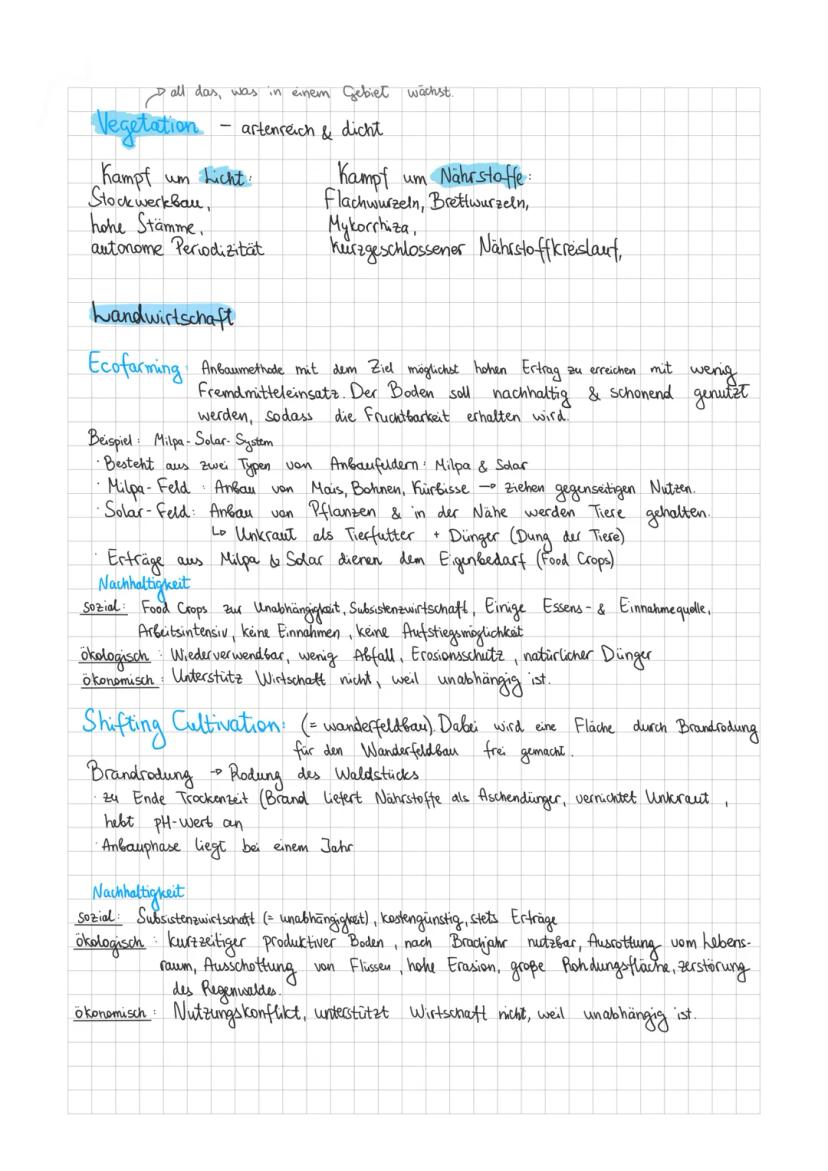 all das, was in einem Gebiet wächst.
Vegetation - artenreich & dicht
Kampf um Licht:
Stockwerkbau,
hohe Stämme,
autonome Periodizität
Kampf um Nährstoffe:
Flachwurzeln, Brettwurzeln,
Mykorrhiza,
kurzgeschlossener Nährstoffkreislauf,
Landwirtschaft
Ecofarming: Anbaumethode mit dem Ziel möglichst hohen Ertrag zu erreichen mit wenig
Fremdmitteleinsatz. Der Boden soll nachhaltig & schonend genutzt
werden, sodass die Fruchtbarkeit erhalten wird.
Beispiel: Milpa-Solar-System
· Besteht aus zwei Typen von Anbaufeldern: Milpa & Solar
· Milpa-Feld: Anbau von Mais, Bohnen, Kürbisse → ziehen gegenseitigen Nutzen.
· Solar-Feld: Anbau von Pflanzen & in der Nähe werden Tiere gehalten.
↳ Unkraut als Tierfutter + Dünger (Dung der Tiere)
· Erträge aus Milpa & Solar dienen dem Eigenbedarf (Food Crops)
Nachhaltigkeit
sozial: Food Crops zur Unabhängigkeit, Subsistenzwirtschaft, Einige Essens- & Einnahmequelle,
Arbeitsintensiv, keine Einnahmen, keine Aufstiegsmöglichkeit
ökologisch: Wiederverwendbar, wenig Abfall, Erosionsschutz, natürlicher Dünger
ökonomisch: Unterstütz Wirtschaft nicht, weil unabhängig ist.
Shifting Cultivation: (= wanderfeldbau). Dabei wird eine Fläche durch Brandrodung
für den Wanderfeldbau frei gemacht.
Brandrodung → Rodung des Waldstücks
· zu Ende Trockenzeit (Brand liefert Nährstoffe als Aschendünger, vernichtet Unkraut,
hebt pH-Wert an
· Anbauphase liegt bei einem Jahr
Nachhaltigkeit
sozial: Subsistenzwirtschaft (= unabhängigkeit), kostengünstig, stets Erträge
ökologisch: kurzzeitiger produktiver Boden, nach Brachjahr nutzbar, Ausrottung vom Lebens-
raum, Ausschottung von Flüssen, hohe Erosion, große Rohdungsfläche, zerstörung
des Regenwaldes.
ökonomisch: Nutzungskonflikt, unterstützt Wirtschaft nicht, weil unabhängig ist.